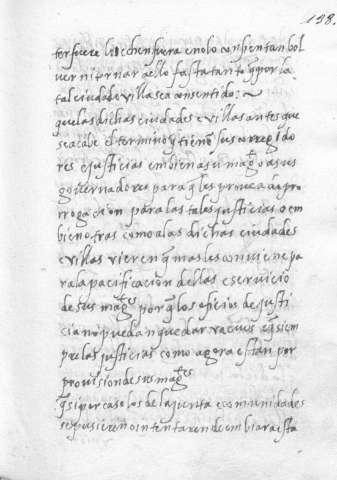 198.
ter fuere lo echen fuera e no lo consientan bol
ver ni tornar a ello fasta tanto q̃ por la
tal ciudad e villa sea consentido:
que las dichas ciudades e villas antes que
se acabe el termino q̃ tienẽ sus corregido
res e justicias embien a su mag. o a sus
governadores para q̃ les provea de pro
rrogacion para las tales justicias o em
bien otras como a las dichas ciudades
e villas vieren q̃ mas les conviene pa
ra la pacificacion dellas e servicio
de sus mag.es por q̃ los oficios de justi
cia no puedan quedar vacuos e q̃ siem
pre las justicias como agora estan por
provision de sus mag.es
q̃ si por caso los de la junta e comunidades
se pusieren o intentaren de embiar a esta